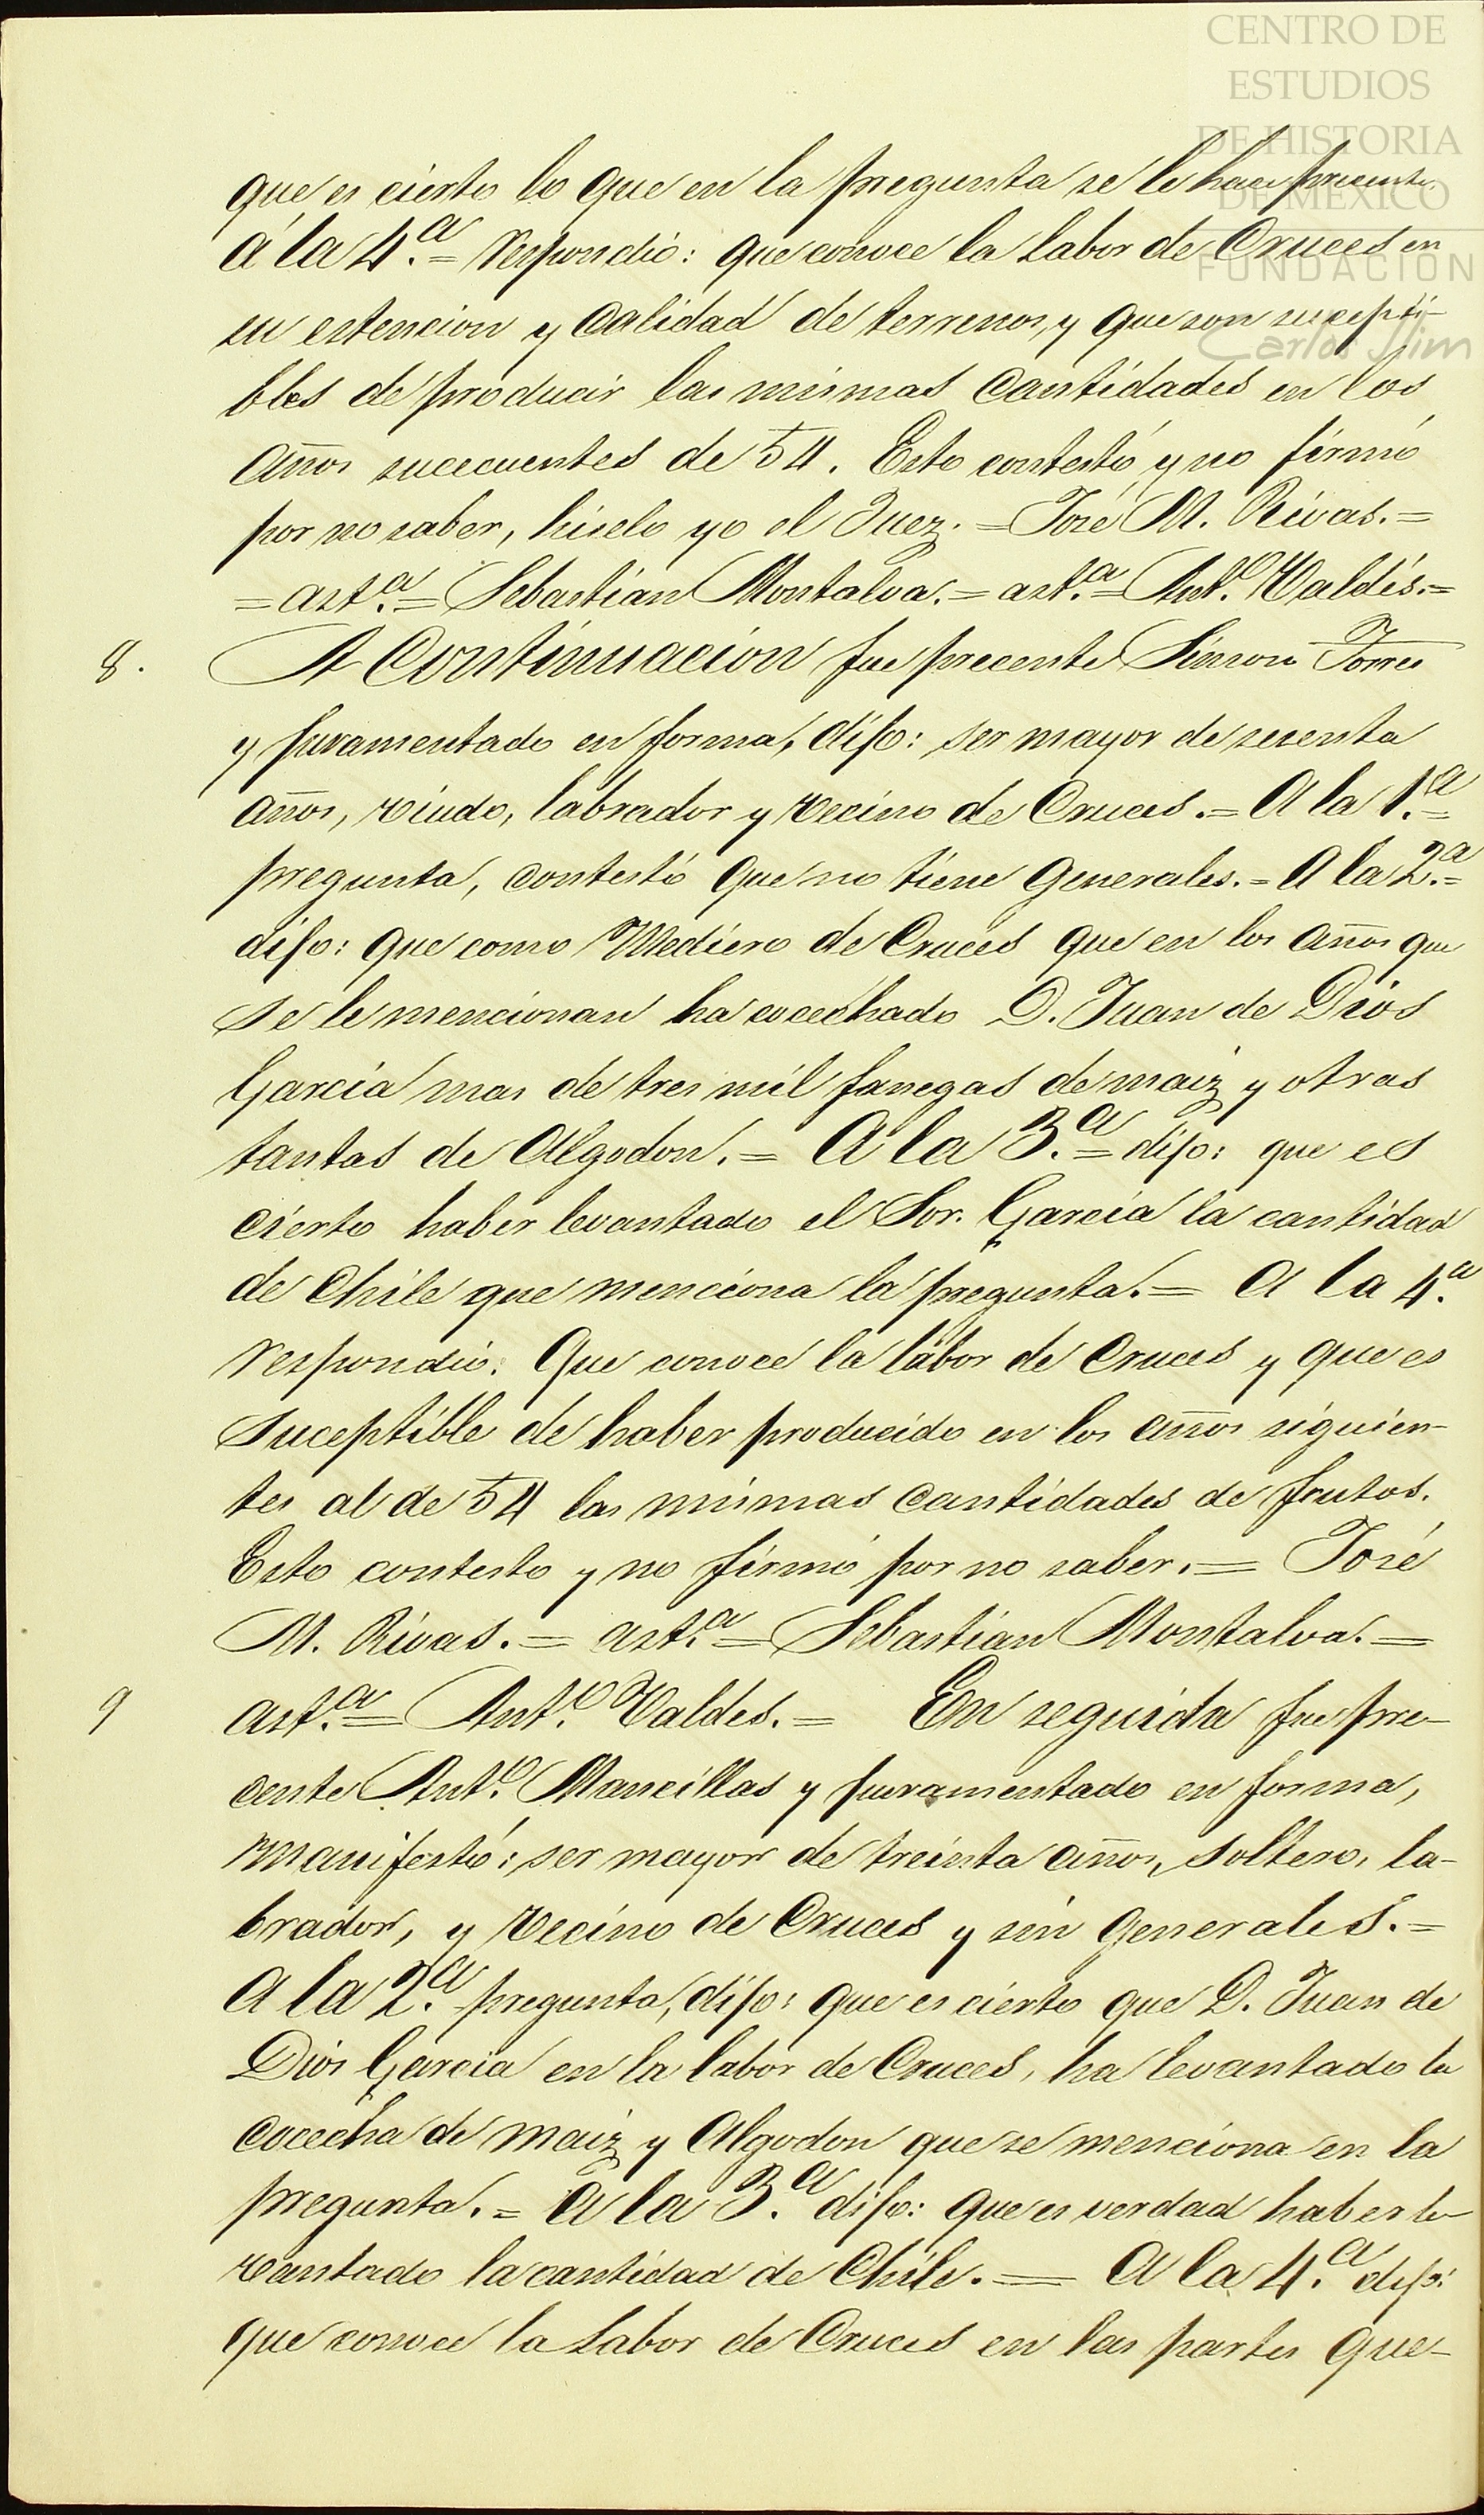 CENTRO DE
ESTUDIOS
DE HISTORIA
DE MEXICO
FUNDACIÓN
Carlos Slim
que es cierto lo que en la pregunta se le hace precente.
A la 4.a = respondió: que conoce la Labor de Cruces en
su estencion y calidad de terrenos, y que son sucepti-
bles de producir las mismas cantidades en los
años sucecuentes de 54. Esto contestó, y no firmó
por no saber, hiselo yo el Juez. = José M. Rivas. =
= ast.a = Sebastian Montalva. = ast.a = Ant.o Valdés. =
8. A Continuacion fue precente Simon Torres
y juramentado en forma, dijo: ser mayor de secenta
años, viudo, labrador y vecino de Cruces. = A la 1.a =
pregunta, contestó que no tiene generales. = A la 2.a =
dijo: que como Mediero de Cruces que en los años que
se le mencionan ha cocechado D. Juan de Dios
García mas de tres mil fanegas de maiz y otras
tantas de Algodon. = A la 3.a = dijo: que es
cierto haber levantado el Sor. García la cantidad
de Chile que menciona la pregunta. = A la 4.a
respondió: Que conoce la labor de Cruces y que es
suceptible de haber producido en los años siguien-
tes al de 54 las mismas cantidades de frutos.
Esto contesto y no firmó por no saber. = José
M. Rivas. = ast.a = Sebastian Montalva. =
9 ast.a = Ant.o Valdes. = En seguida fue pre-
cente Ant.o Mancillas y juramentado en forma,
manifestó: ser mayor de treinta años, soltero, la-
brador, y vecino de Cruces y sin generales. =
A la 2.a pregunta, dijo: que es cierto que D. Juan de
Dios Garcia en la labor de Cruces, ha levantado la
cocecha de maiz y Algodon que se menciona en la
pregunta. = A la 3.a dijo: que es verdad haber le-
vantado la cantidad de Chile. = A la 4.a dijo:
que conoce la Labor de Cruces en las partes que-